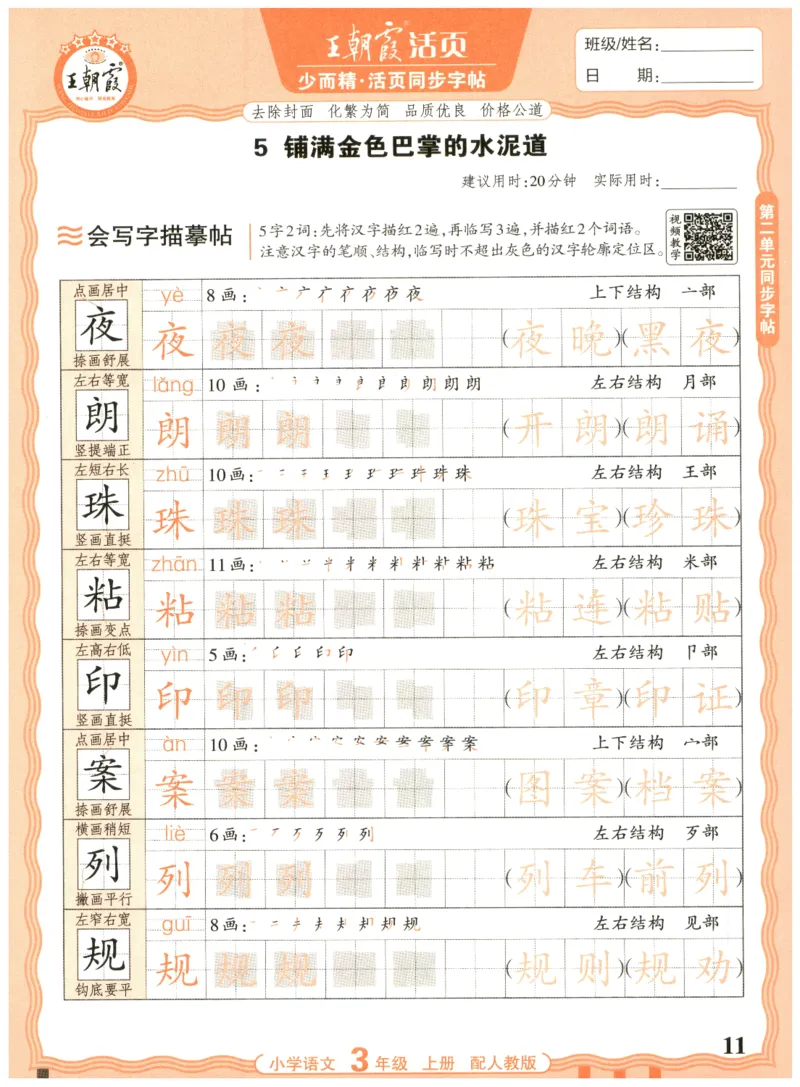 王朝霞®活页
少而精·活页同步字帖
王朝霞®
班级/姓名:
日 期:
去除封面 化繁为简 品质优良 价格公道
5 铺满金色巴掌的水泥道
建议用时:20分钟 实际用时:
会写字描摹帖
5字2词:先将汉字描红2遍,再临写3遍,并描红2个词语。
注意汉字的笔顺、结构,临写时不超出灰色的汉字轮廓定位区。
视频教学
第二单元同步字帖
点画居中 yè 8画: 上下结构 亠部
夜 夜 夜 夜 (夜晚)(黑夜)
捺画舒展
左右等宽 lǎng 10画: 左右结构 月部
朗 朗 朗 朗 (开朗)(朗诵)
竖提端正
左短右长 zhū 10画: 左右结构 王部
珠 珠 珠 珠 (珠宝)(珍珠)
竖画直挺
左右等宽 zhān 11画: 左右结构 米部
粘 粘 粘 粘 (粘连)(粘贴)
捺画变点
左高右低 yìn 5画: 左右结构 卩部
印 印 印 印 (印章)(印证)
竖画直挺
点画居中 àn 10画: 上下结构 宀部
案 案 案 案 (图案)(档案)
捺画舒展
横画稍短 liè 6画: 左右结构 歹部
列 列 列 列 (列车)(前列)
撇画平行
左窄右宽 guī 8画: 左右结构 见部
规 规 规 规 (规则)(规劝)
钩底要平
11
小学语文 3年级 上册 配人教版